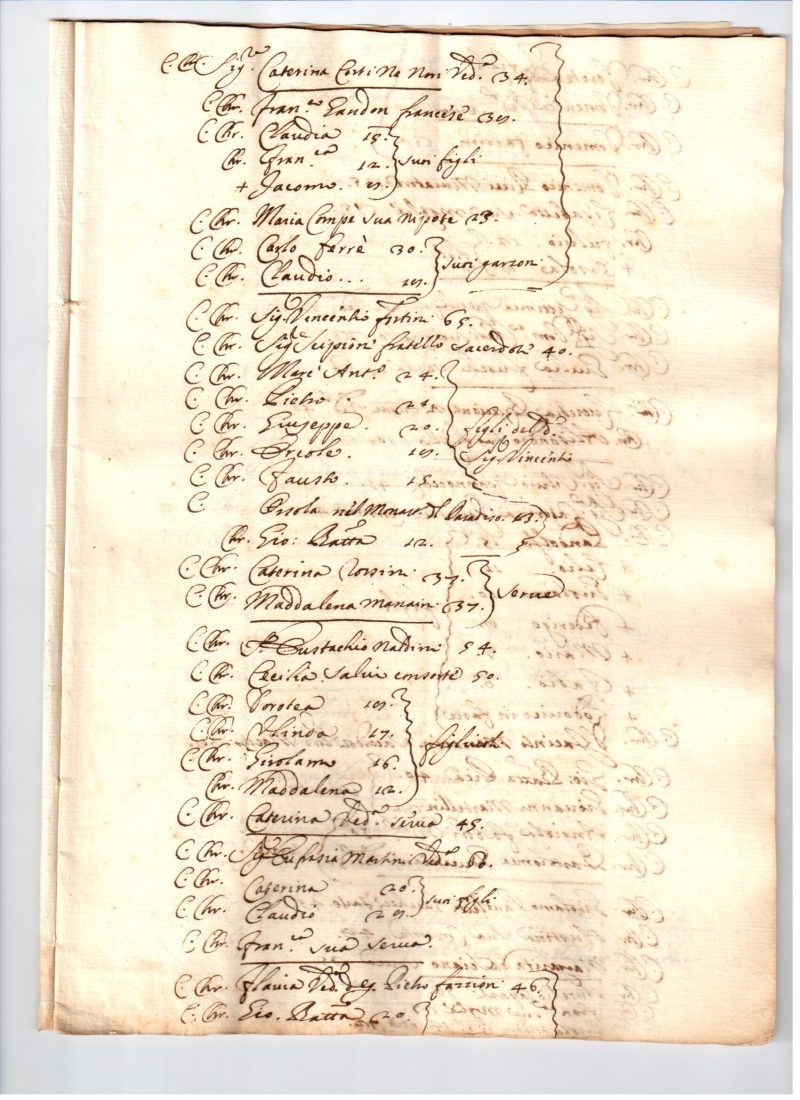 C. Chr. Sig.ra Caterina Corti Ne Neri Ved.a 34.
C. Chr. Fran.co francese
C. Chr. Claudia 15.
Chr. Fran.ca 12. suoi figli
+ Jacomo.
C. Chr. Maria Compè sua nipote 23.
C. Chr. Carlo ferrè 30. suoi garzoni
C. Chr. Claudio...
C. Chr. Sig. Vincentio 65.
C. Chr. Sig. Scipion fratello sacerdote 40.
C. Chr. Marc' Ant.o 24.
C. Chr. Pietro.
C. Chr. Giuseppe. 20. figli del d.o
C. Chr. Ercole. Sig. Vincentio
C. Chr. Fausto. 15.
C. Orsola nel Monast. d. Paradiso. 13.
Chr. Gio: Batta 12.
C. Chr. Caterina 37.
C. Chr. Maddalena 37. serve
C. Chr. Eustachio Naldini 54.
C. Chr. Cecilia Salvi consorte 50.
C. Chr. Dorotea
C. Chr. Olinda 17. figliuoli
C. Chr. Girolamo 16.
Chr. Maddalena 12.
C. Chr. Caterina Ved.a serva 45.
C. Chr. Sig.ra Eufrasia Martini Ved.a 66.
C. Chr. Caterina 20. suoi figli
C. Chr. Claudio
C. Chr. Fran.ca sua serva.
C. Chr. Flavia Ved.a Pietro 46.
C. Chr. Gio. Batta 20.